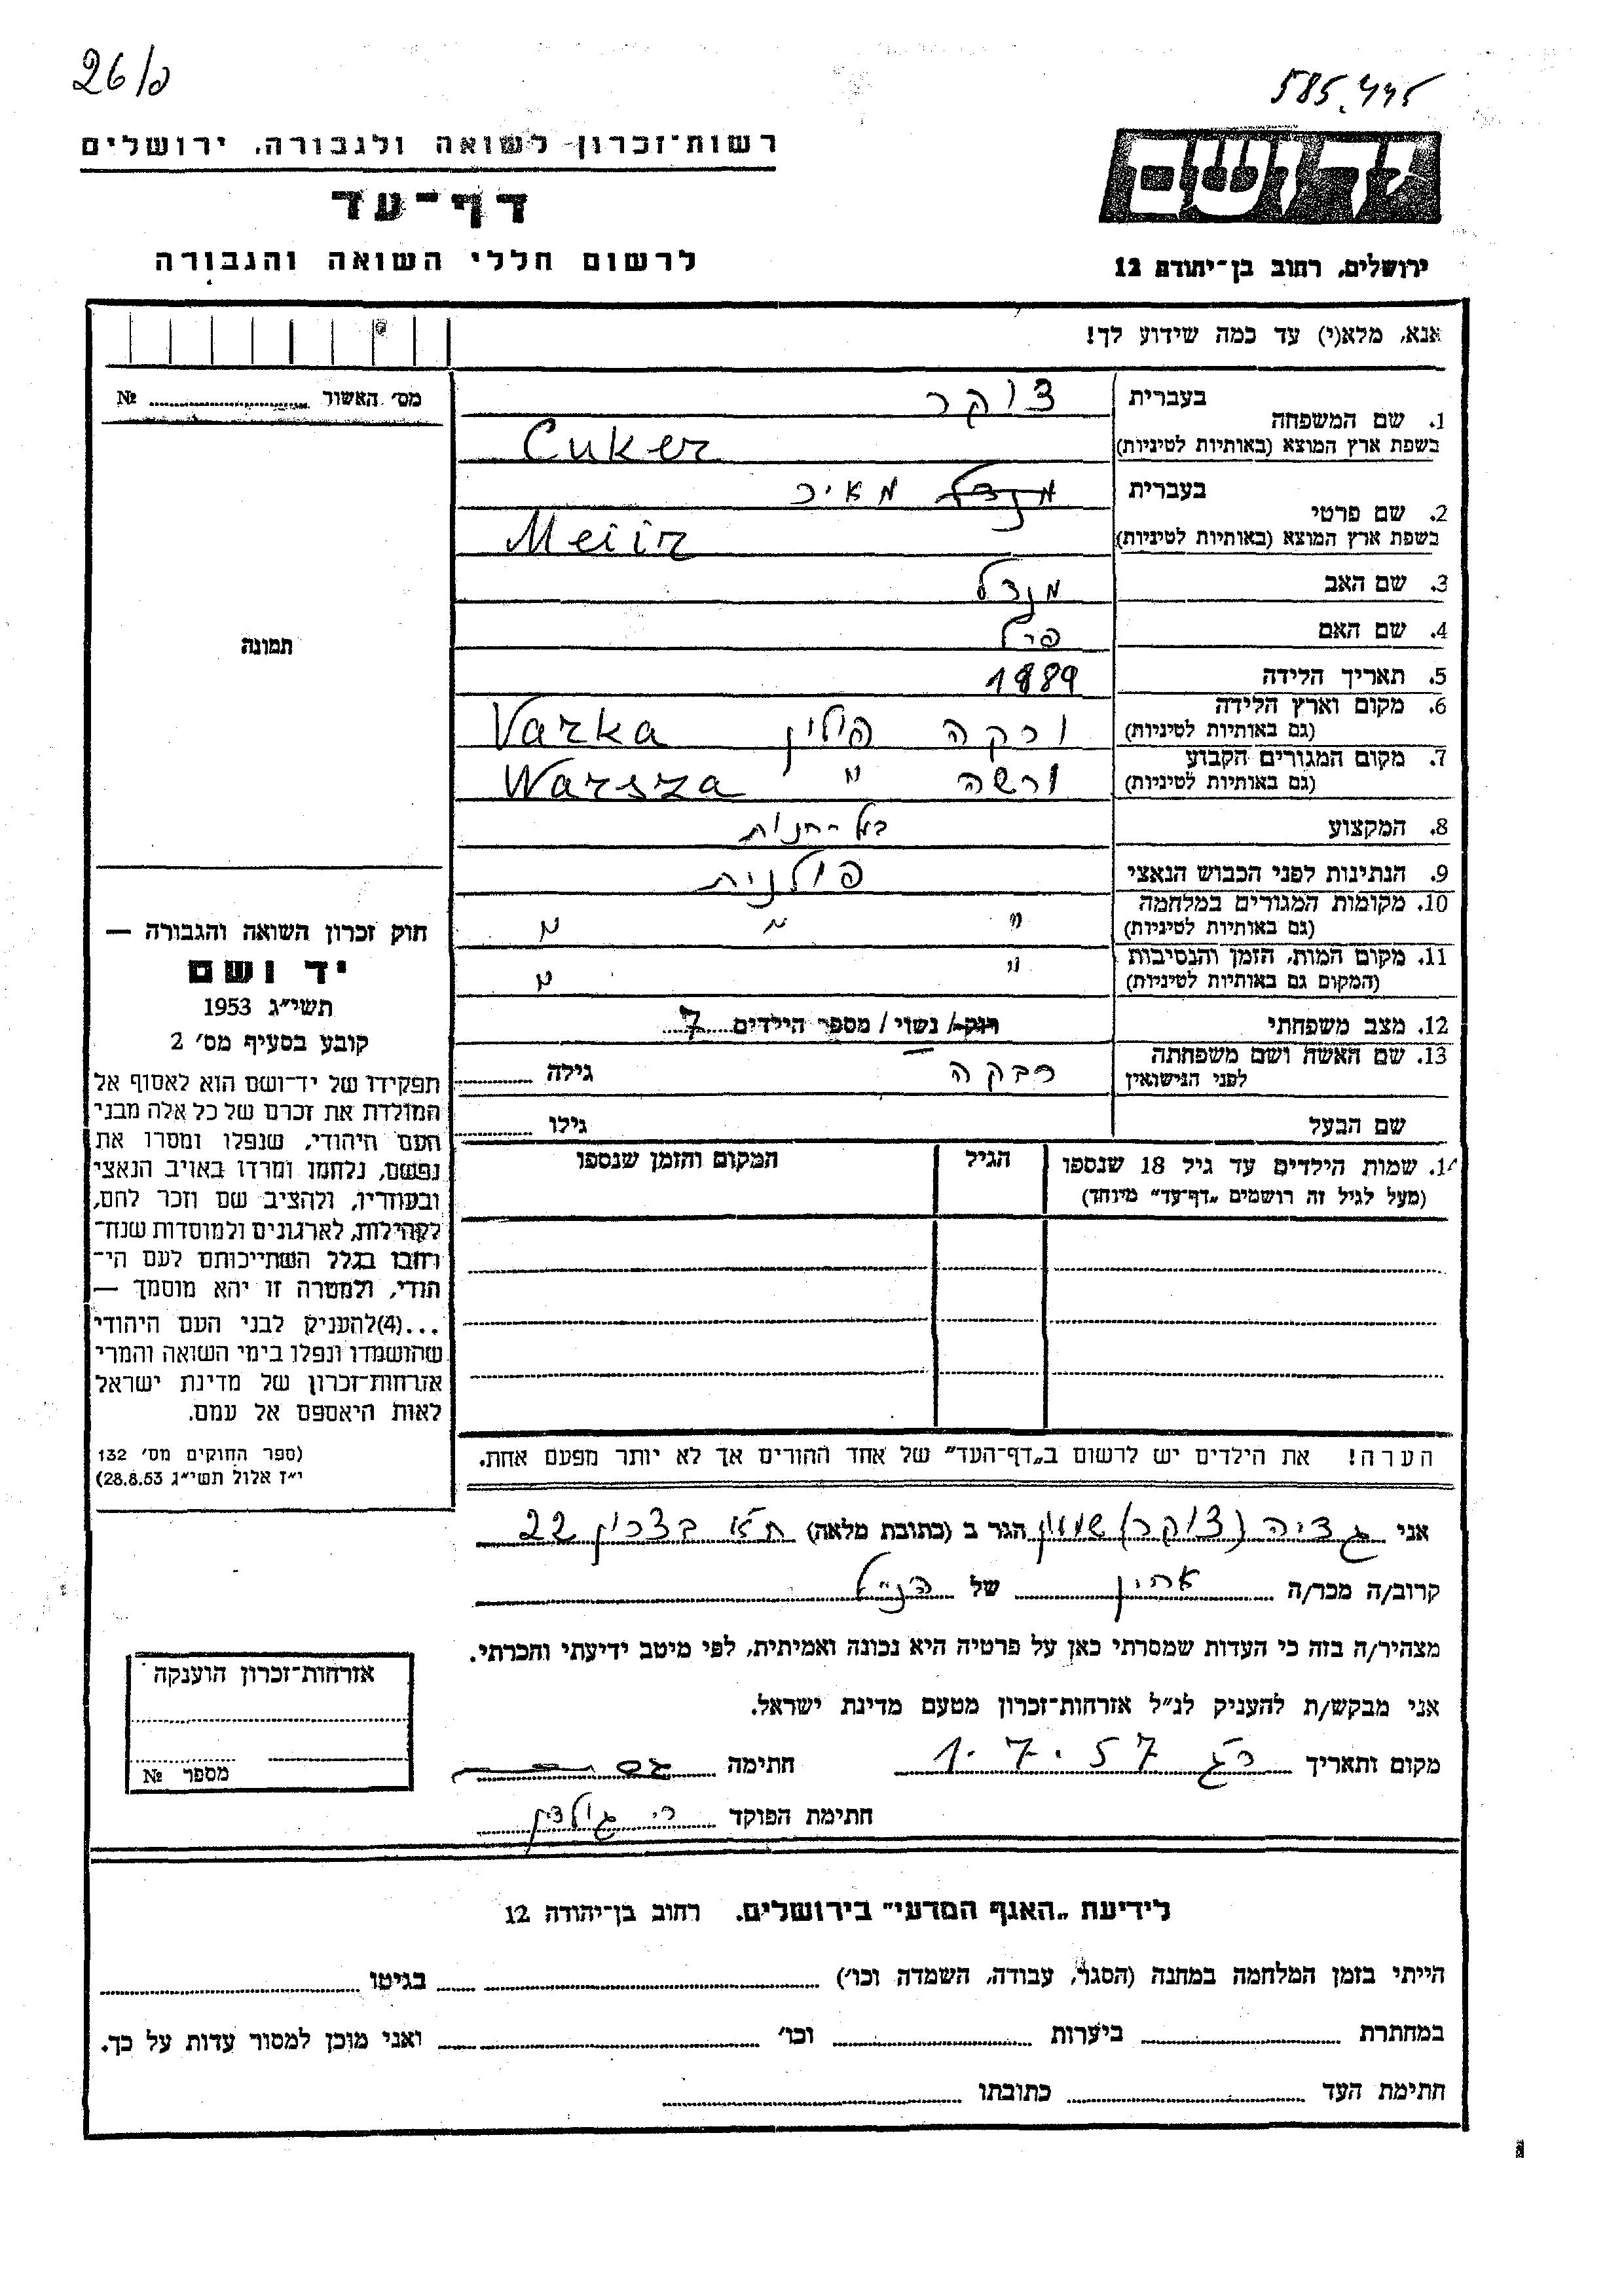 26/פ
רשות־זכרון לשואה ולגבורה, ירושלים
דף־עד
לרשום חללי השואה והגבורה
יד ושם
ירושלים, רחוב בן־יהודה 12
אנא, מלא(י) עד כמה שידוע לך!
מס׳ האשור № 
תמונה
1. שם המשפחה בעברית צוקר
בשפת ארץ המוצא (באותיות לטיניות) Cuker
2. שם פרטי בעברית מנדל מאיר
בשפת ארץ המוצא (באותיות לטיניות) Meiir
3. שם האב מנדל
4. שם האם פרל
5. תאריך הלידה 1889
6. מקום וארץ הלידה (גם באותיות לטיניות) ורקה פולין Varka
7. מקום המגורים הקבוע (גם באותיות לטיניות) ורשה " Warsza
8. המקצוע בעל-חנות
9. הנתינות לפני הכבוש הנאצי פולנית
10. מקומות המגורים במלחמה (גם באותיות לטיניות) " " "
11. מקום המות, הזמן והנסיבות (המקום גם באותיות לטיניות) " "
12. מצב משפחתי רווק/ נשוי/ מספר הילדים 7
13. שם האשה ושם משפחתה לפני הנישואין רבקה גילה
שם הבעל גילו
14. שמות הילדים עד גיל 18 שנספו (מעל לגיל זה רושמים „דף־עד” מיוחד) הגיל המקום והזמן שנספו
הערה! את הילדים יש לרשום ב„דף־העד” של אחד ההורים אך לא יותר מפעם אחת.
חוק זכרון השואה והגבורה —
יד ושם
תשי״ג 1953
קובע בסעיף מס׳ 2
תפקידו של יד־ושם הוא לאסוף אל
המולדת את זכרם של כל אלה מבני
העם היהודי, שנפלו ומסרו את
נפשם, נלחמו ומרדו באויב הנאצי
ובעוזריו, ולהציב שם וזכר להם,
לקהילות, לארגונים ולמוסדות שנח־
רבו בגלל השתייכותם לעם הי־
הודי, ולמטרה זו יהא מוסמך —
...(4)להעניק לבני העם היהודי
שהושמדו ונפלו בימי השואה והמרי
אזרחות־זכרון של מדינת ישראל
לאות היאספם אל עמם.
(ספר החוקים מס׳ 132
י״ז אלול תשי״ג 28.8.53)
אני גדיה (צוקר) שמעון הגר ב (כתובת מלאה) ת״א בצרון 22
קרוב/ה מכר/ה אחין של הנ״ל
מצהיר/ה בזה כי העדות שמסרתי כאן על פרטיה היא נכונה ואמיתית, לפי מיטב ידיעתי והכרתי.
אני מבקש/ת להעניק לנ״ל אזרחות־זכרון מטעם מדינת ישראל.
מקום ותאריך רג 1.7.57 חתימה
חתימת הפוקד
אזרחות־זכרון הוענקה
מספר №
לידיעת „האגף המדעי” בירושלים. רחוב בן־יהודה 12
הייתי בזמן המלחמה במחנה (הסגר, עבודה, השמדה וכו׳) בגיטו
במחתרת ביערות וכו׳ ואני מוכן למסור עדות על כך.
חתימת העד כתובתו